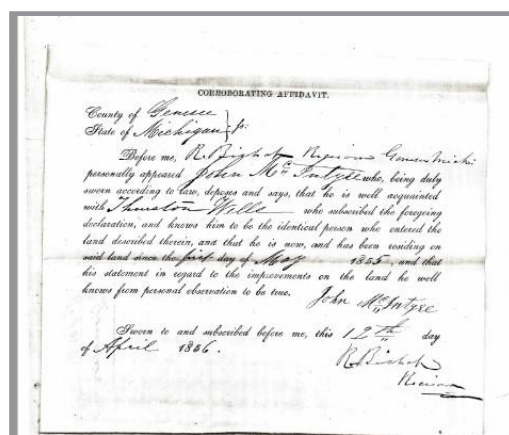 CORROBORATING AFFIDAVIT.
County of Genesee
State of Michigan } ss:
Before me, R. Bishop Receiver Genesee Mich:
personally appeared John McIntyre who, being duly
sworn according to law, deposes and says, that he is well acquainted
with Thurston Wells who subscribed the foregoing
declaration, and knows him to be the identical person who entered the
land described therein, and that he is now, and has been residing on
said land since the first day of May 1855, and that
his statement in regard to the improvements on the land he well
knows from personal observation to be true.
John McIntyre
Sworn to and subscribed before me, this 12th day
of April 1856.
R. Bishop
Receiver